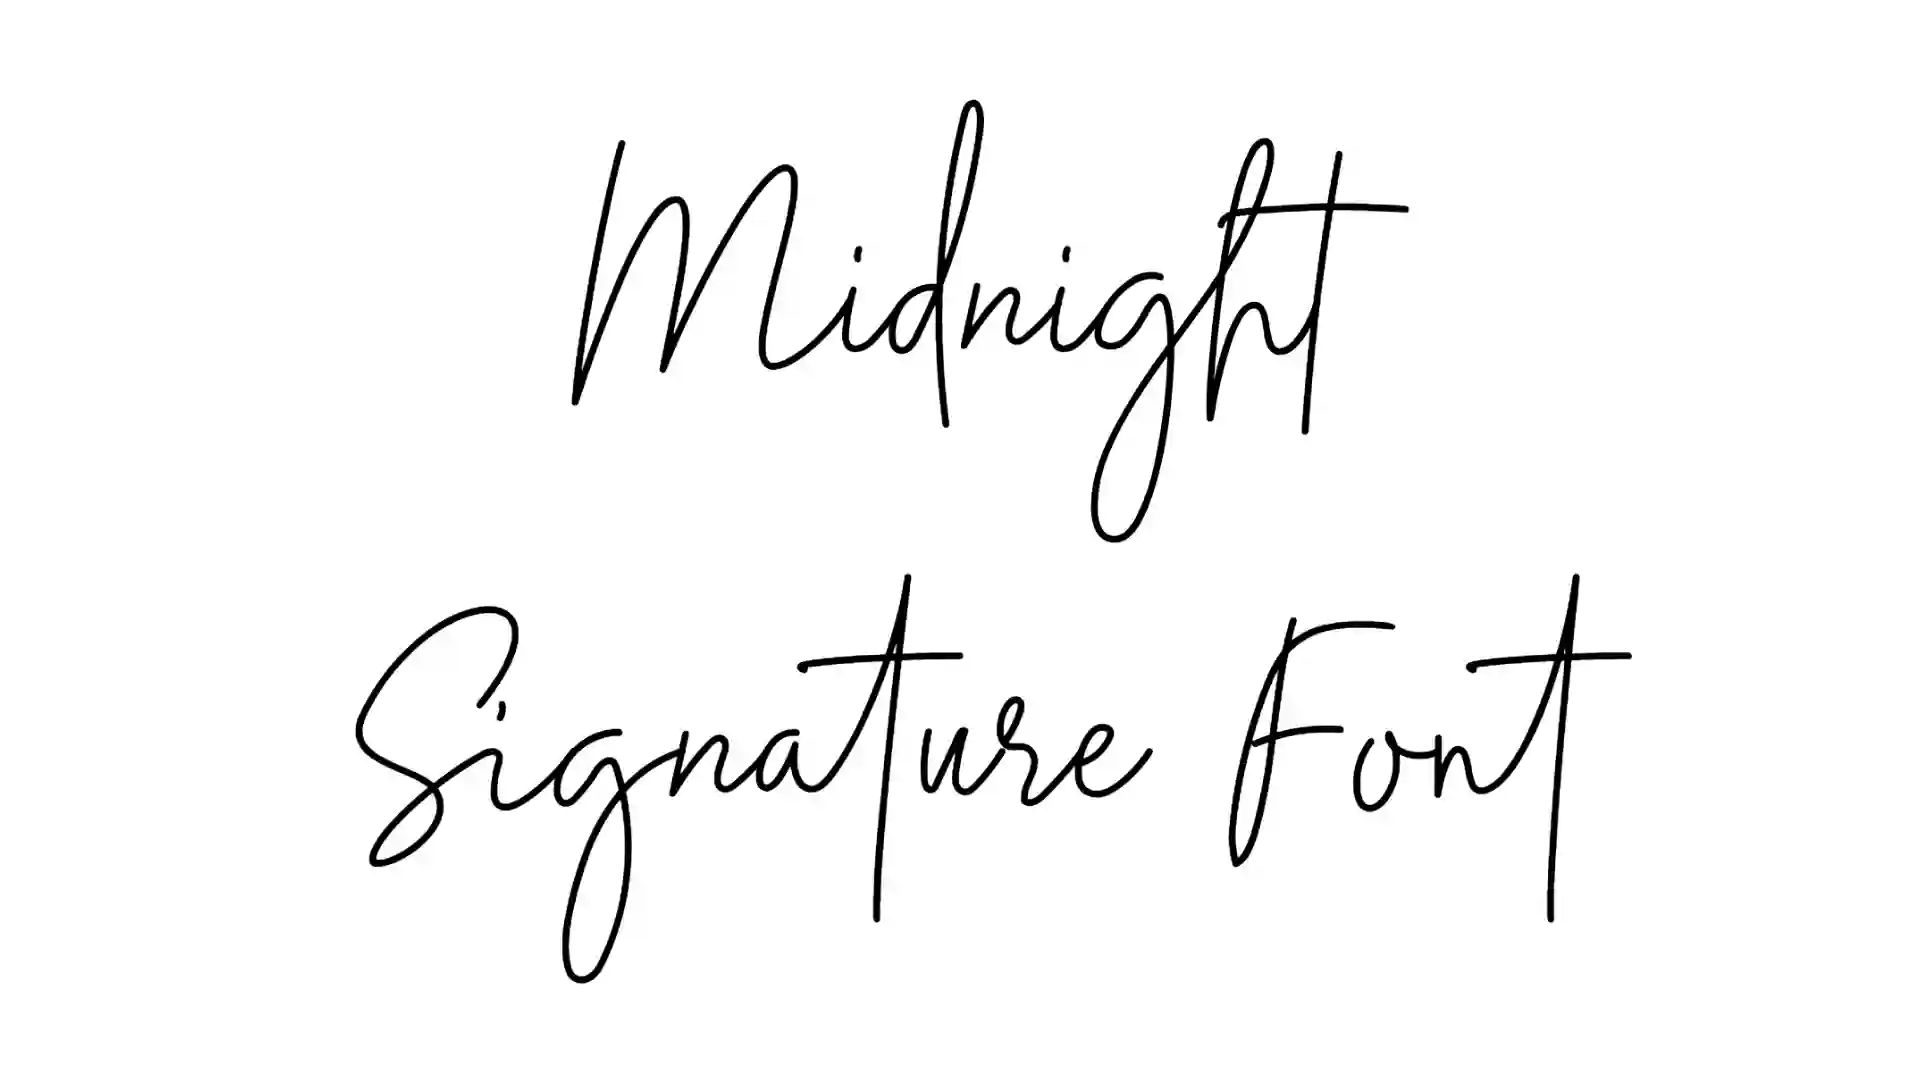 Midnight
Signature Font